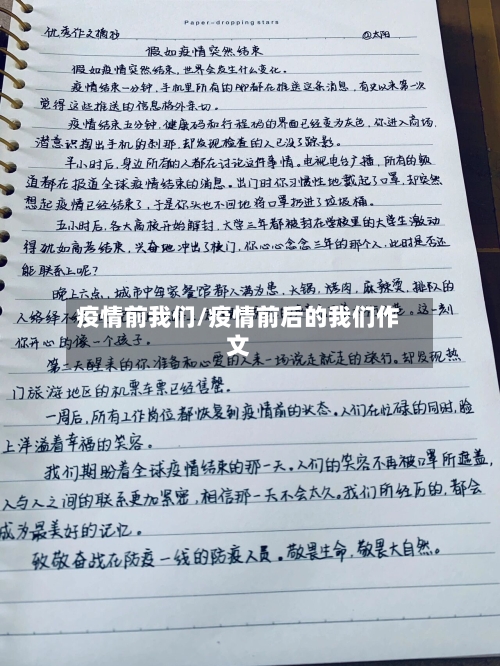 Paper-dropping stars
优秀作文摘抄
@太阳
假如疫情突然结束
假如疫情突然结束,世界会发生什么变化。
疫情结束一分钟,手机里所有的APP都在推送这条消息,有史以来第一次
觉得这些推送的信息格外亲切。
疫情结束五分钟,健康码和行程码的界面已经变为灰色,你进入商场,
潜意识掏出手机的刹那,却发现检查的人已没了踪影。
半小时后,身边所有的人都在讨论这件事情。电视电台广播,所有的频
道都在报道全球疫情结束的消息。出门时你习惯性地戴起了口罩,却突然
想起疫情已经结束了,于是你头也不回地将口罩扔进了垃圾桶。
五小时后,各大高校开始解封,大学三年都被封在学校里的大学生激动
得犹如高考结束,兴奋地冲出了校门,你心心念念三年的那个人,此时是否还
能联系上呢?
晚上六点,城市中每家餐馆都人满为患,火锅,烤肉,麻辣烫,排队的
人络绎不
这一刻
你开心的像一个孩子。
疫情前我们/疫情前后的我们作
文
第二天醒来的你准备和心爱的人来一场说走就走的旅行。却发现热
门旅游地区的机票车票已经售罄。
一周后,所有工作岗位都恢复到疫情前的状态。人们在忙碌的同时,脸
上洋溢着幸福的笑容。
我们期盼着全球疫情结束的那一天。人们的笑容不再被口罩所遮盖,
人与人之间的联系更加紧密,相信那一天不会太久。我们所经历的,都会
成为最美好的记忆。
致敬奋战在防疫一线的防疫人员。敬畏生命,敬畏大自然。